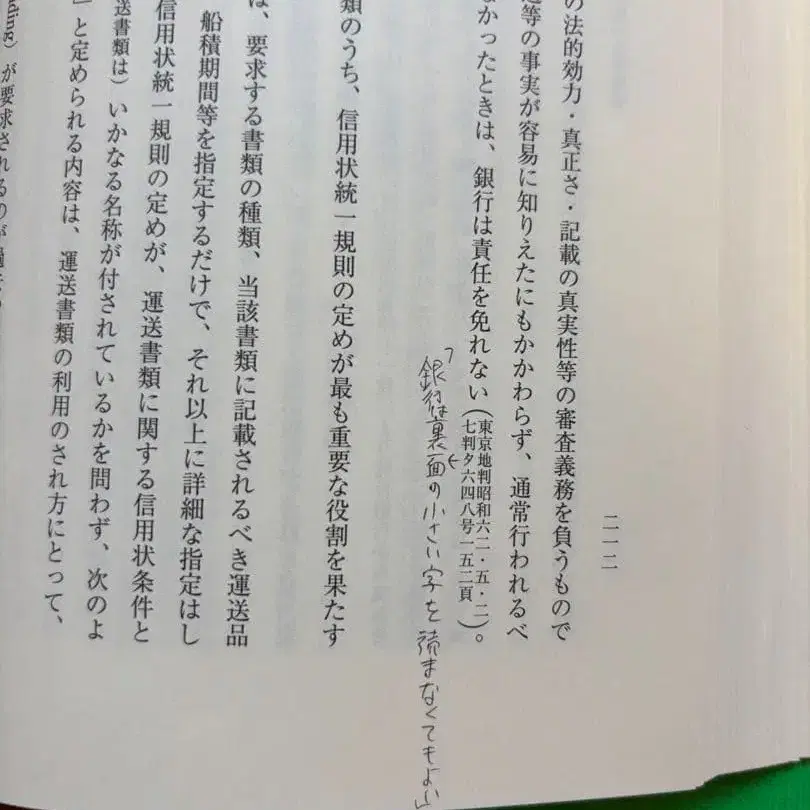 二一二
の法的効力・真正さ・記載の真実性等の審査義務を負うもので
等の事実が容易に知りえたにもかかわらず、通常行われるべ
なかったときは、銀行は責任を免れない(東京地判昭和六二・五・二
七判タ六四八号一五二頁)。
「銀行は裏面の小さい字を読まなくてもよい」
類のうち、信用状統一規則の定めが最も重要な役割を果たす
は、要求する書類の種類、当該書類に記載されるべき運送品
船積期間等を指定するだけで、それ以上に詳細な指定はし
信用状統一規則の定めが、運送書類に関する信用状条件と
運送書類は)いかなる名称が付されているかを問わず、次のよ
」と定められる内容は、運送書類の利用のされ方にとって、
ding)が要求されるのが過去